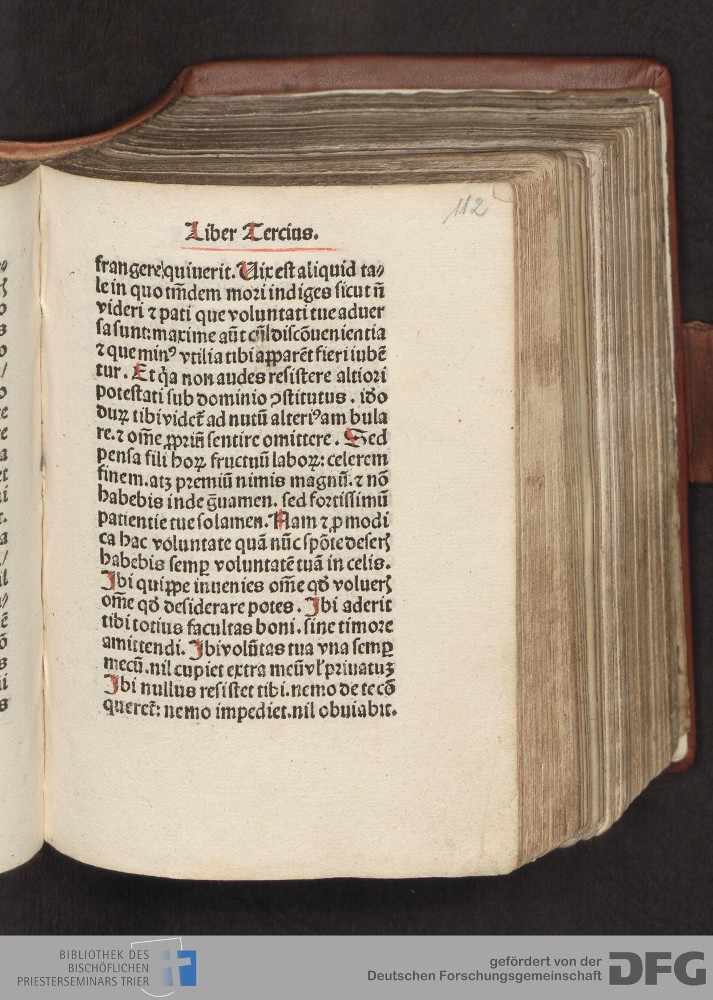 112
Liber Tercius.
frangere quiuerit. Uix est aliquid ta⸗
le in quo tm̄dem mori indiges sicut ea q̄ n̄
videri ⁊ pati que voluntati tue aduer
sa sunt: maxime aūt cū discōuenientia
⁊ que minꝰ vtilia tibi apparēt fieri iubē
tur. Et q̇a non audes resistere altiori
potestati sub dominio ꝯstitutus. iđo
duꝝ tibi videt̄ ad nutū alteriꝰ ambula
re. ⁊ om̄e ꝓpriū sentire omittere. Sed
pensa fili hoꝝ fructuū laboꝝ: celerem
finem. atꝫ premiū nimis magnū. ⁊ nō
habebis inde g̃uamen. sed fortissimū
patientie tue solamen. Nam ⁊ ꝓ modi
ca hac voluntate quā nūc spōte deserꝭ
habebis semꝑ voluntatē tuā in celis.
Ibi quippe inuenies om̄e qđ voluerꝭ
om̄e qđ desiderare potes. Ibi aderit
tibi totius facultas boni. sine timore
amittendi. Ibi volūtas tua vna semꝑ
mecū. nil cupiet extra meū vl̕ priuatuꝫ
Ibi nullus resistet tibi. nemo de te cō
queret̄: nemo impediet. nil obuiabit.
BIBLIOTHEK DES
BISCHÖFLICHEN
PRIESTERSEMINARS TRIER
gefördert von der
Deutschen Forschungsgemeinschaft
DFG